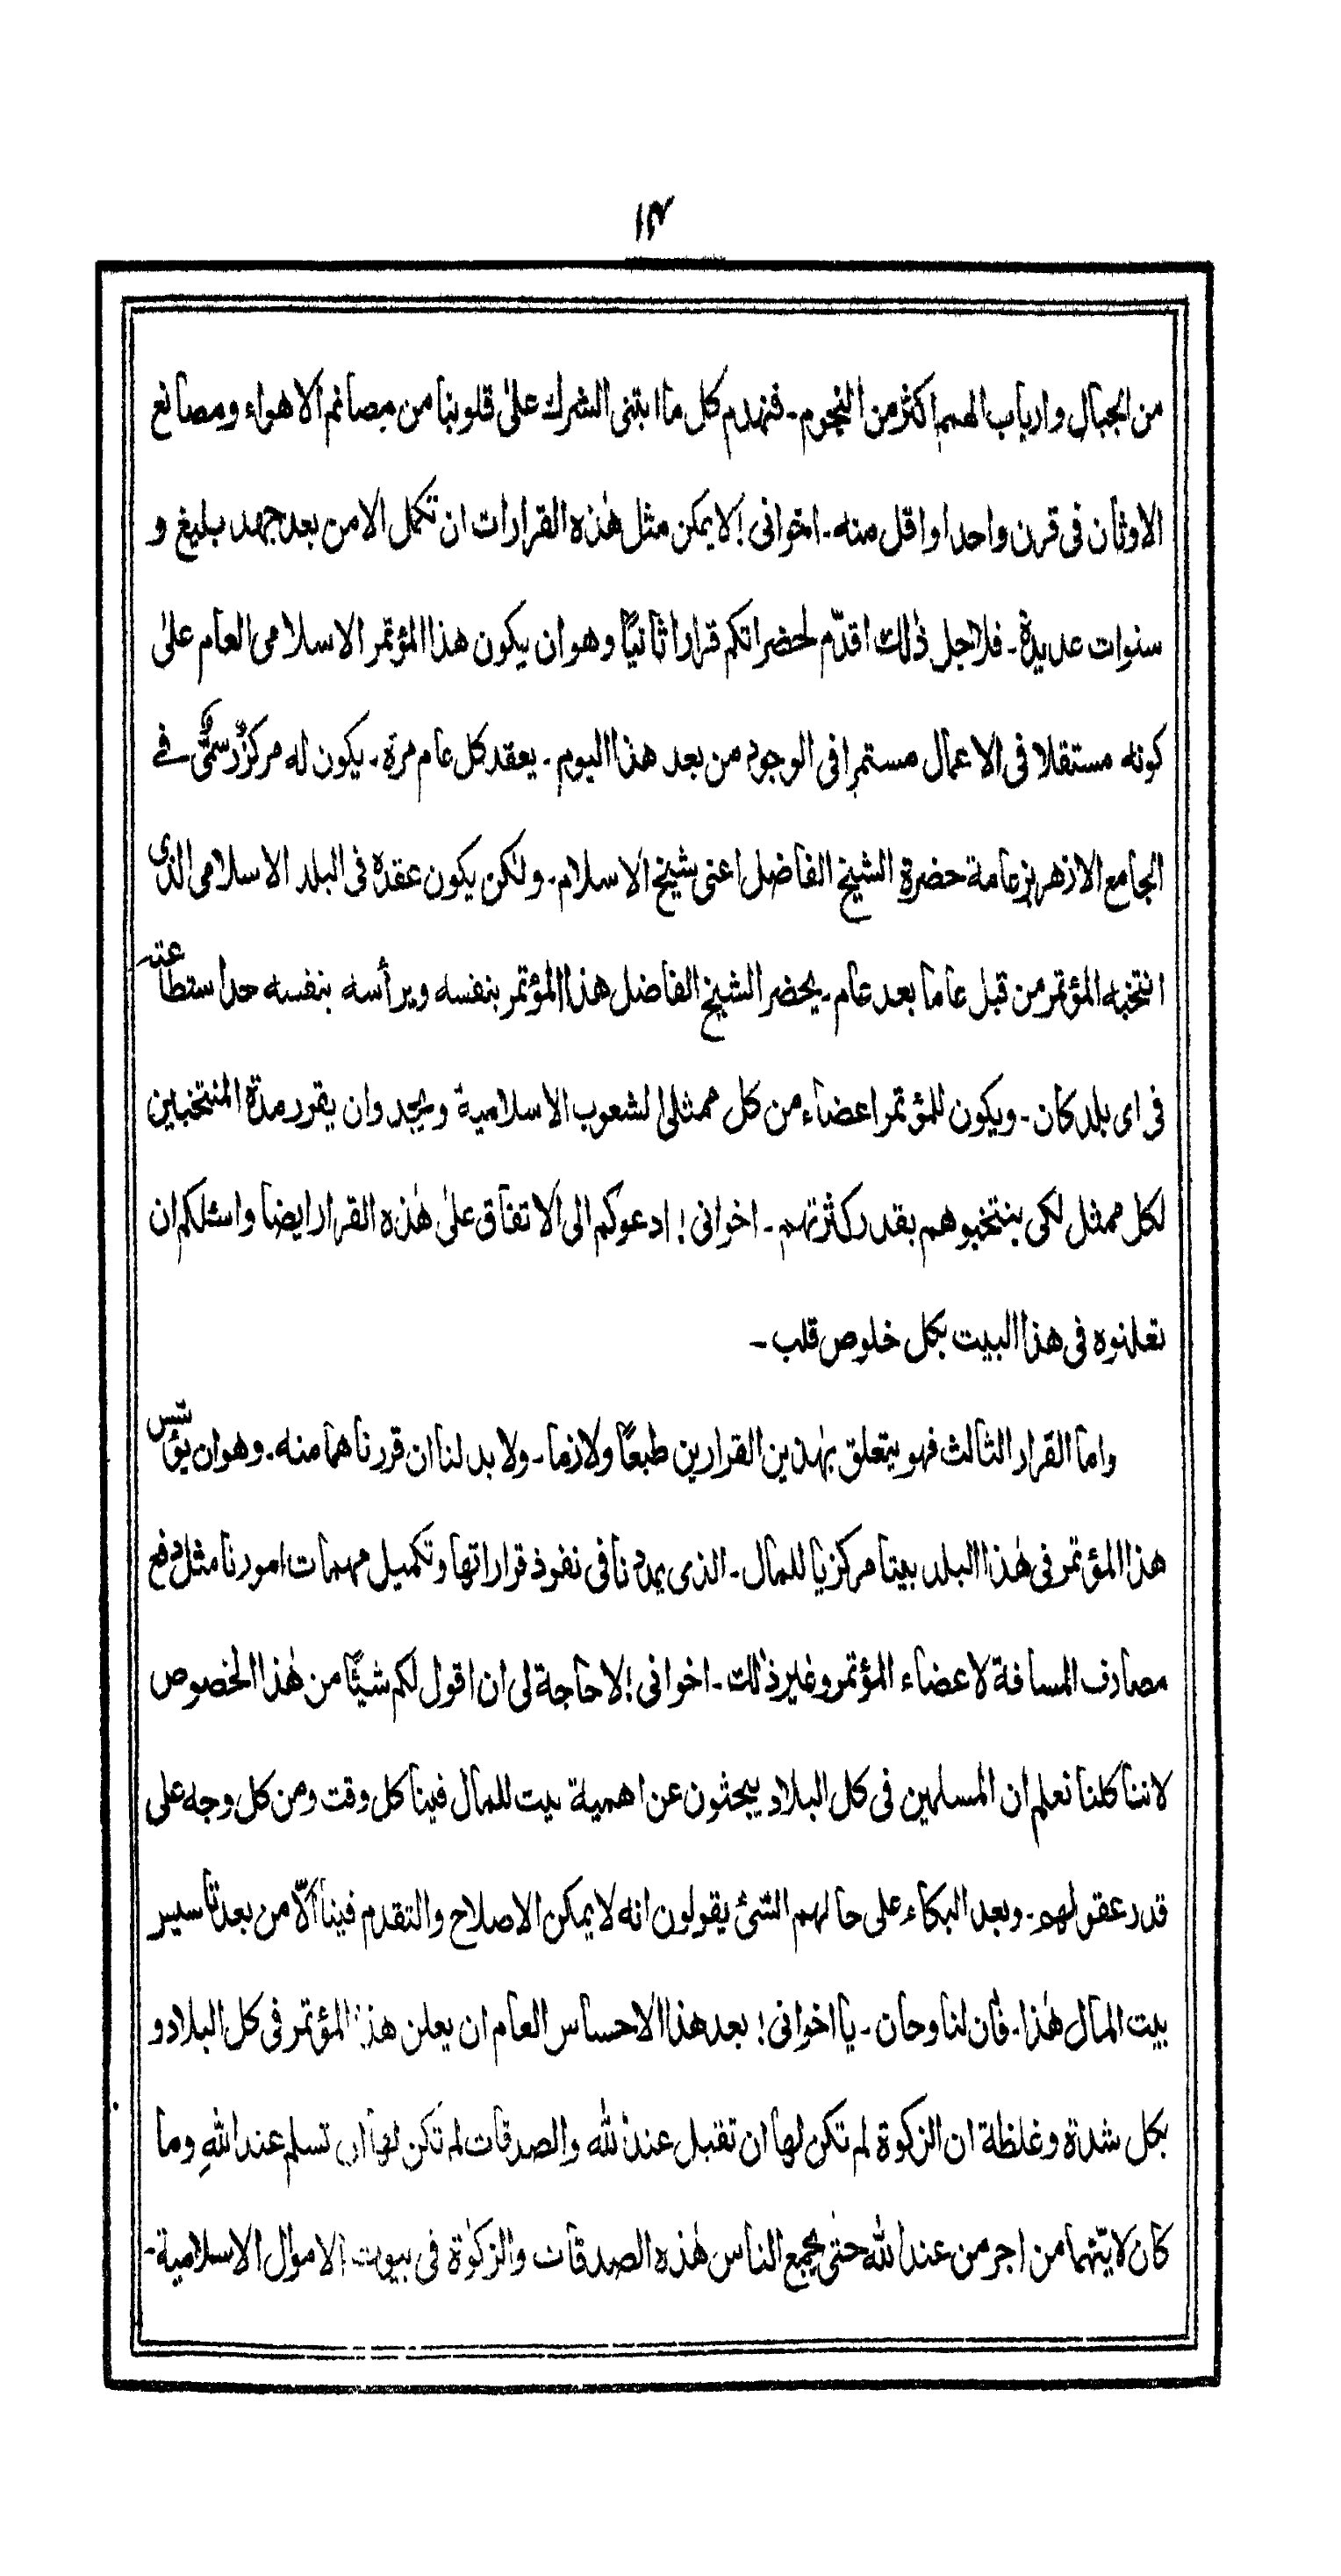 ١٣
من الجبال وارباب الهمم اكثر من النجوم ـ فنهدم كل ما ابتنى الشرك علىٰ قلوبنا من مصانم الاهواء ومصانع
الاوثان فى قرن واحد او اقل منه ـ اخوانى! لا يمكن مثل هٰذه القرارات ان تكمل الا من بعد جهد بليغ و
سنوات عديدة ـ فلاجل ذٰلك اقدّم لحضراتكم قرارا ثانيًا وهو ان يكون هذا المؤتمر الاسلامى العام علىٰ
كونه مستقلا فى الاعمال مستمرا فى الوجود من بعد هذا اليوم ـ يعقد كل عام مرة ـ يكون له مركزٌ رسمىٌّ فے
الجامع الازهر بزعامة حضرة الشيخ الفاضل اعنى شيخ الاسلام ـ ولٰكن يكون عقده فى البلد الاسلامى الذى
انتخبه المؤتمر من قبل عاما بعد عام ـ يحضر الشيخ الفاضل هذا المؤتمر بنفسه ويرأسه بنفسه حد استطاعته
فى اى بلد كان ـ ويكون للمؤتمر اعضاء من كل ممثلى الشعوب الاسلامية ويجد وان يقرر مدة المنتخبين
لكل ممثل لكى ينتخبوهم بقدر كثرتهم ـ اخوانى! ادعوكم الى الاتفاق علىٰ هٰذه القرار ايضا واسئلكم ان
تعلنوه فى هذا البيت بكل خلوص قلب ـ
واما القرار الثالث فهو يتعلق بهٰذين القرارين طبعًا ولازما ـ ولا بد لنا ان قررناهما منه ـ وهو ان يؤسس
هذا المؤتمر فى هٰذا البلد بيتا مركزيا للمال ـ الذى يمدنا فى نفوذ قراراتها وتكميل مهمات امورنا مثل دفع
مصارف المسافة لاعضاء المؤتمر وغير ذٰلك ـ اخوانى! لا حاجة لى ان اقول لكم شيئًا من هٰذا الخصوص
لاننا كلنا نعلم ان المسلمين فى كل البلاد يبحثون عن اهمية بيت للمال فينا كل وقت ومن كل وجه على
قدر عقولهم ـ وبعد البكاء على حالهم الشئ يقولون انه لا يمكن الاصلاح والتقدم فينا الّا من بعد تاسيس
بيت المال هٰذا ـ فأن لنا وحان ـ يا اخوانى! بعد هذا الاحساس العام ان يعلن هذا المؤتمر فى كل البلاد و
بكل شدة وغلظة ان الزكوة لم تكن لها ان تقبل عند الله والصدقات لم تكن لها ان تسلم عند اللهِ وما
كان لايّتهما من اجر من عند الله حتٰى يجمع الناس هٰذه الصدقات والزكوٰة فى بيوت الاموال الاسلامية ـ